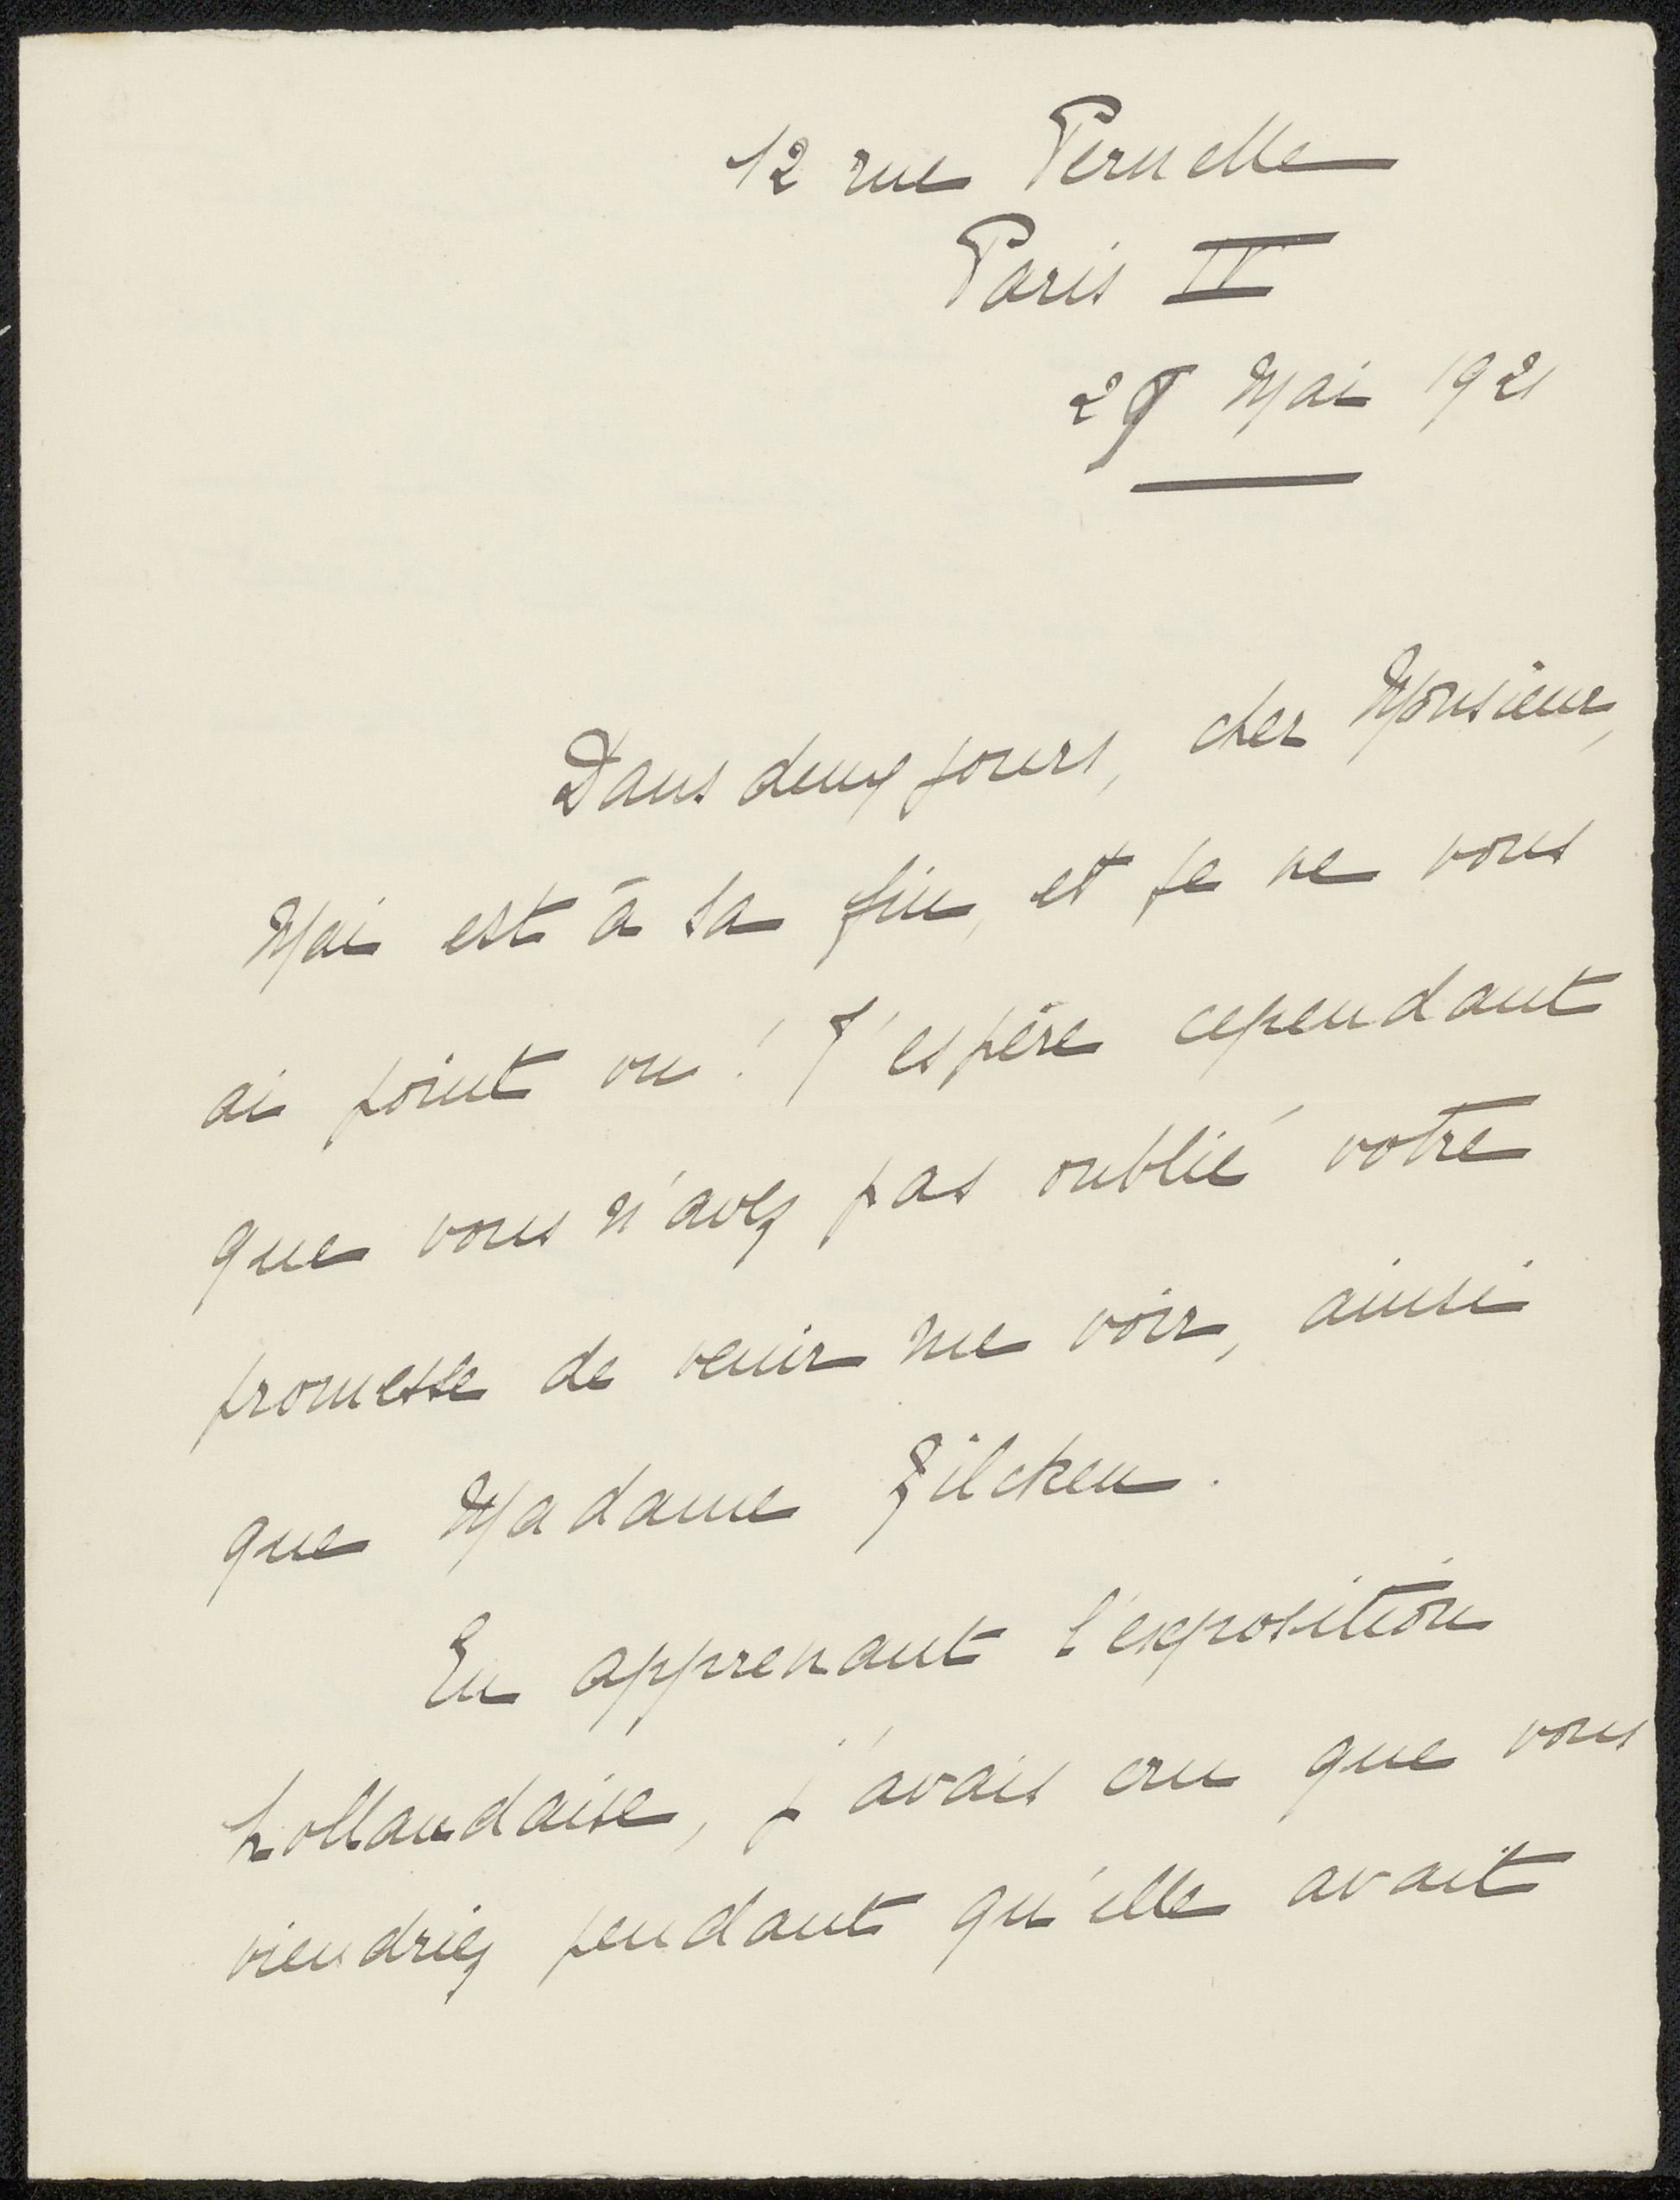 12 rue Pernelle
Paris IV
29 Mai 1921
Dans deux jours, cher Monsieur,
Mai est à sa fin, et je ne vous
ai point vu ! J'espère cependant
que vous n'avez pas oublié votre
promesse de venir me voir, ainsi
que Madame Zilcken.
En apprenant l'exposition
hollandaise, j'avais cru que vous
viendriez pendant qu'elle avait